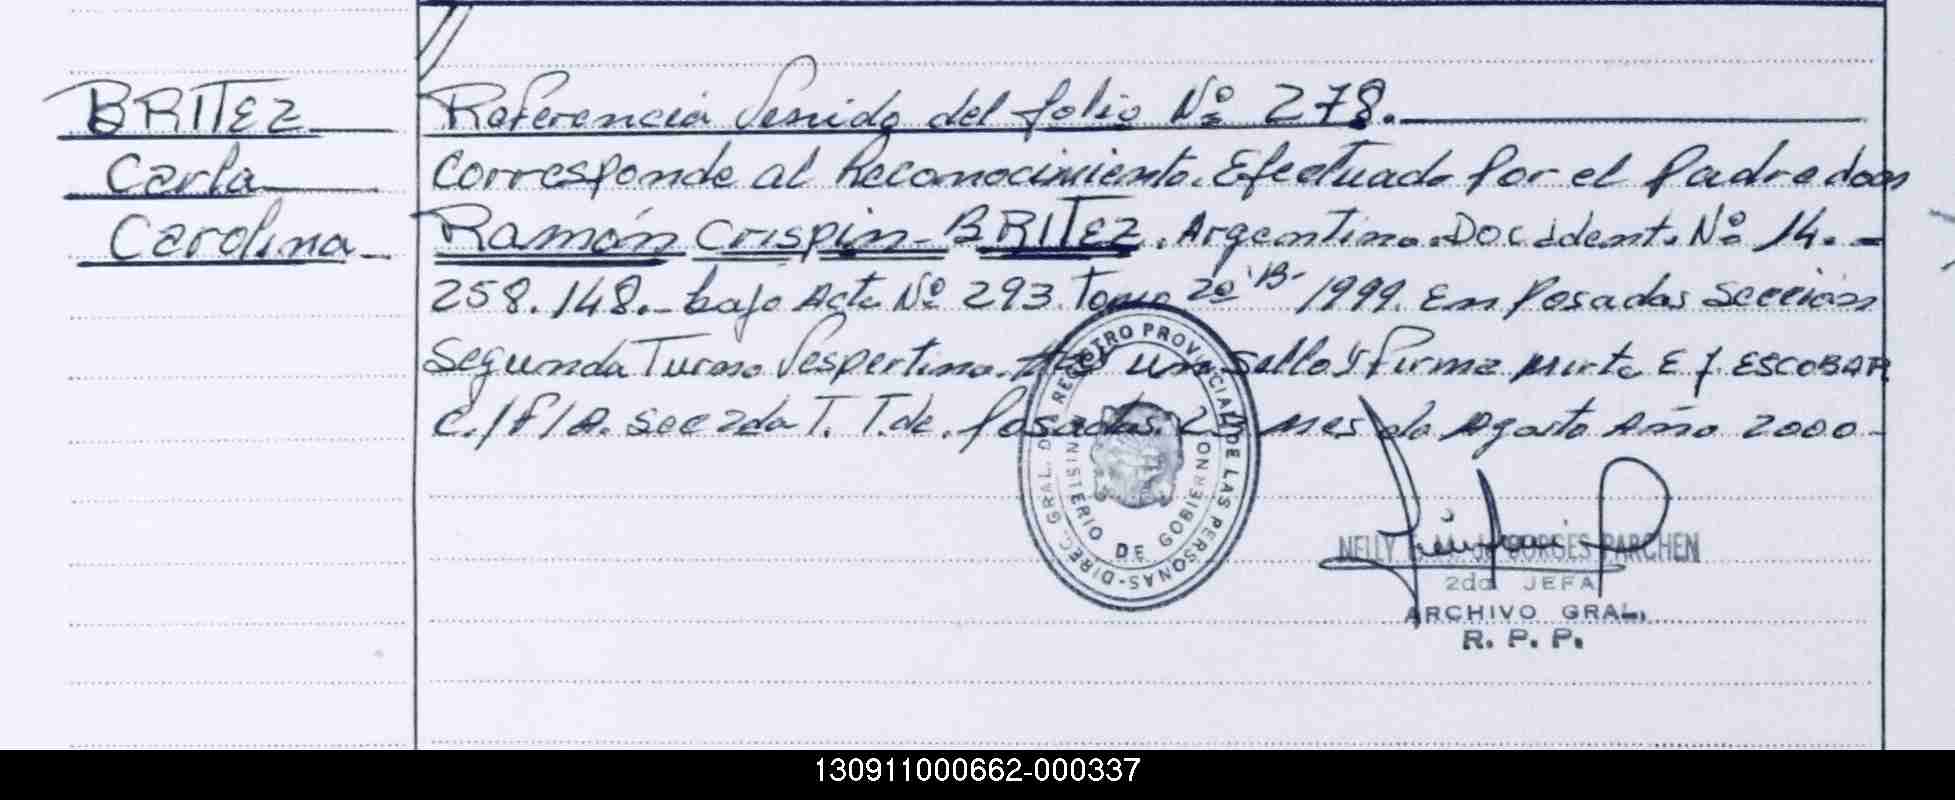 BRITEZ
Carla
Carolina
Referencia Venida del folio Nº 278.
Corresponde al Reconocimiento. Efectuado por el padre don
Ramón Crispin - BRITEZ. Argentino. Doc. ident. Nº 14. -
258.148. - bajo Acta Nº 293. Tomo 2º "B" 1999. En Posadas Sección
Segunda Turno Vespertino. Hay un Sello y Firma Mirta E J. ESCOBAR
C./f/A. Sec 2da T. T. de. Posadas. Mes de Agosto Año 2000 -
DIREC. GRAL. DEL REGISTRO PROVINCIAL DE LAS PERSONAS
MINISTERIO DE GOBIERNO
NELLY de BORGES PARCHEN
2da JEFA
ARCHIVO GRAL.
R. P. P.
130911000662-000337